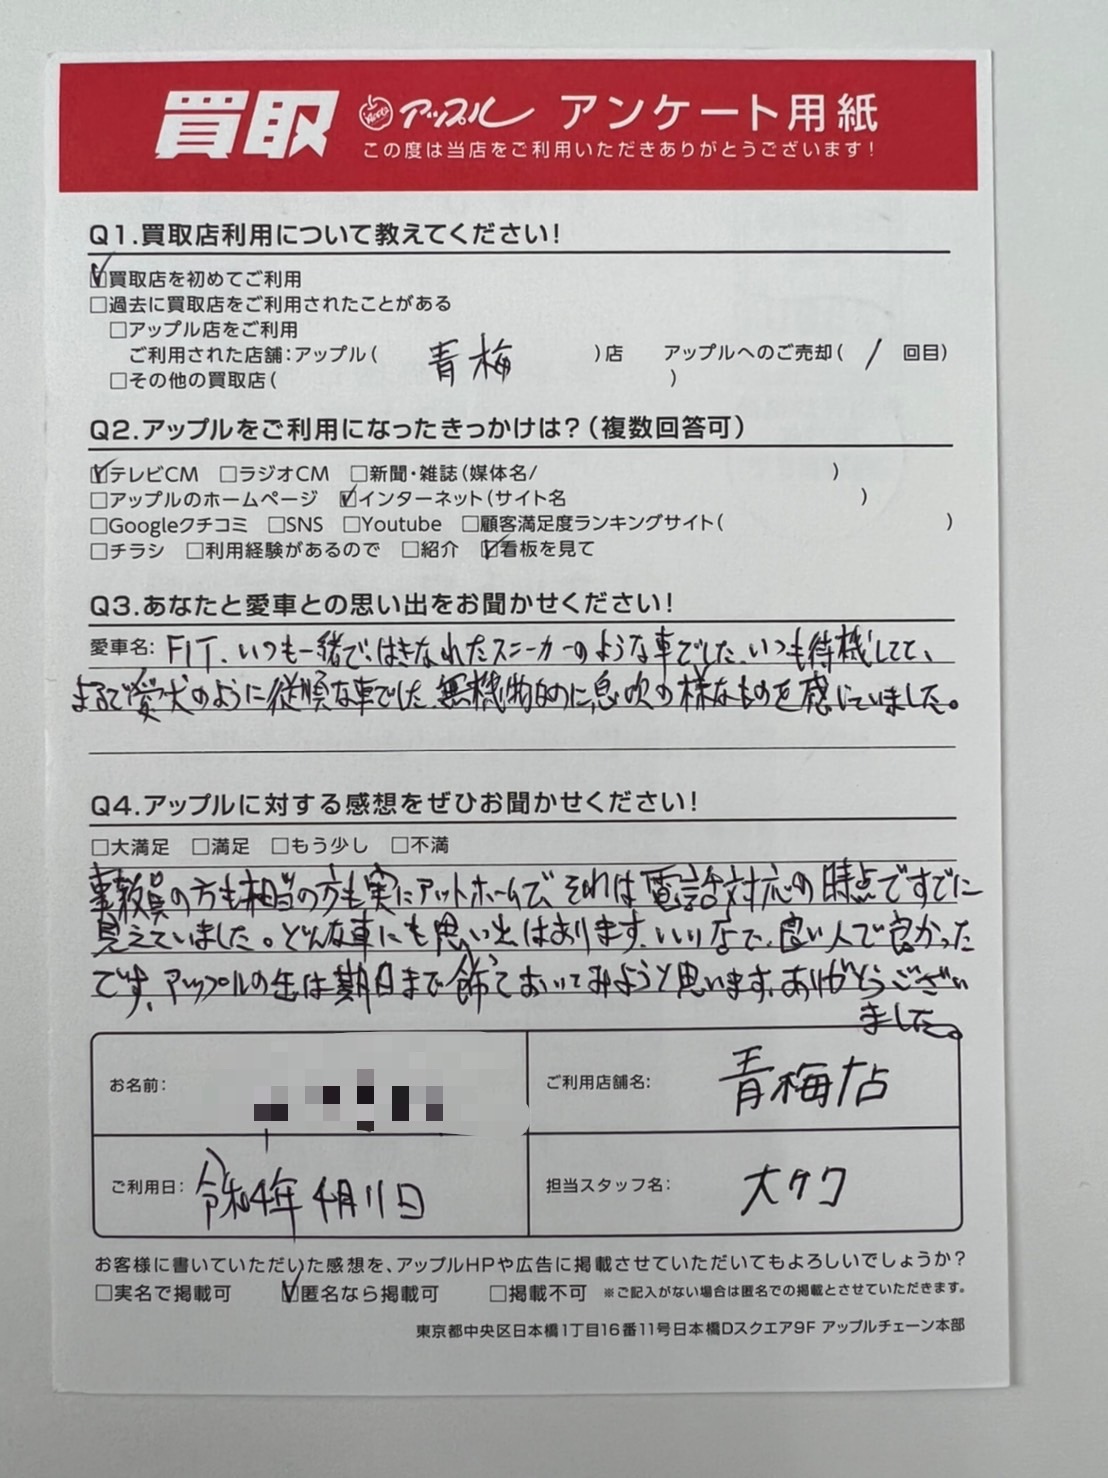 買取 アップル アンケート用紙
この度は当店をご利用いただきありがとうございます!
Q1.買取店利用について教えてください!
☑買取店を初めてご利用
□過去に買取店をご利用されたことがある
□アップル店をご利用
ご利用された店舗:アップル( 青梅 )店 アップルへのご売却( / 回目)
□その他の買取店( )
Q2.アップルをご利用になったきっかけは?(複数回答可)
☑テレビCM □ラジオCM □新聞・雑誌(媒体名/ )
□アップルのホームページ ☑インターネット(サイト名 )
□Googleクチコミ □SNS □Youtube □顧客満足度ランキングサイト( )
□チラシ □利用経験があるので □紹介 ☑看板を見て
Q3.あなたと愛車との思い出をお聞かせください!
愛車名: FIT、いつも一緒で、はきなれたスニーカーのような車でした、いつも待機してて、
まるで愛犬のように従順な車でした、無機物的のに、息吹の様なものを感じていました。
Q4.アップルに対する感想をぜひお聞かせください!
□大満足 □満足 □もう少し □不満
の方も担当の方も実にアットホームで、それは電話対応の時点ですでに
見えていました。どんな車にも思い出はあります、いいなで、良い人で良かった
です、アップルの缶は期日まで飾っておいてみようと思います、ありがとうござい
ました。
お名前:
ご利用店舗名: 青梅店
ご利用日: 令和4年4月11日
担当スタッフ名: 大タク
お客様に書いていただいた感想を、アップルHPや広告に掲載させていただいてもよろしいでしょうか?
□実名で掲載可 ☑匿名なら掲載可 □掲載不可 ※ご記入がない場合は匿名での掲載とさせていただきます。
東京都中央区日本橋1丁目16番11号日本橋Dスクエア9F アップルチェーン本部